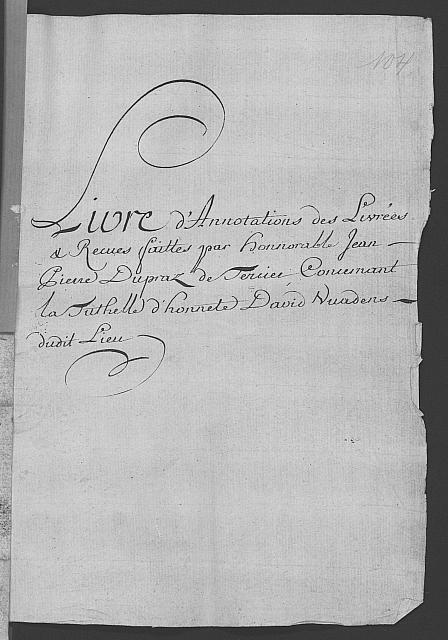 104
Livre d'Annotations des Livrées
& Recues faittes par honnorable Jean
Pierre Dupraz de Tercier Concernant
la Tuthelle d'honnete David Vuadens
dudit Lieu